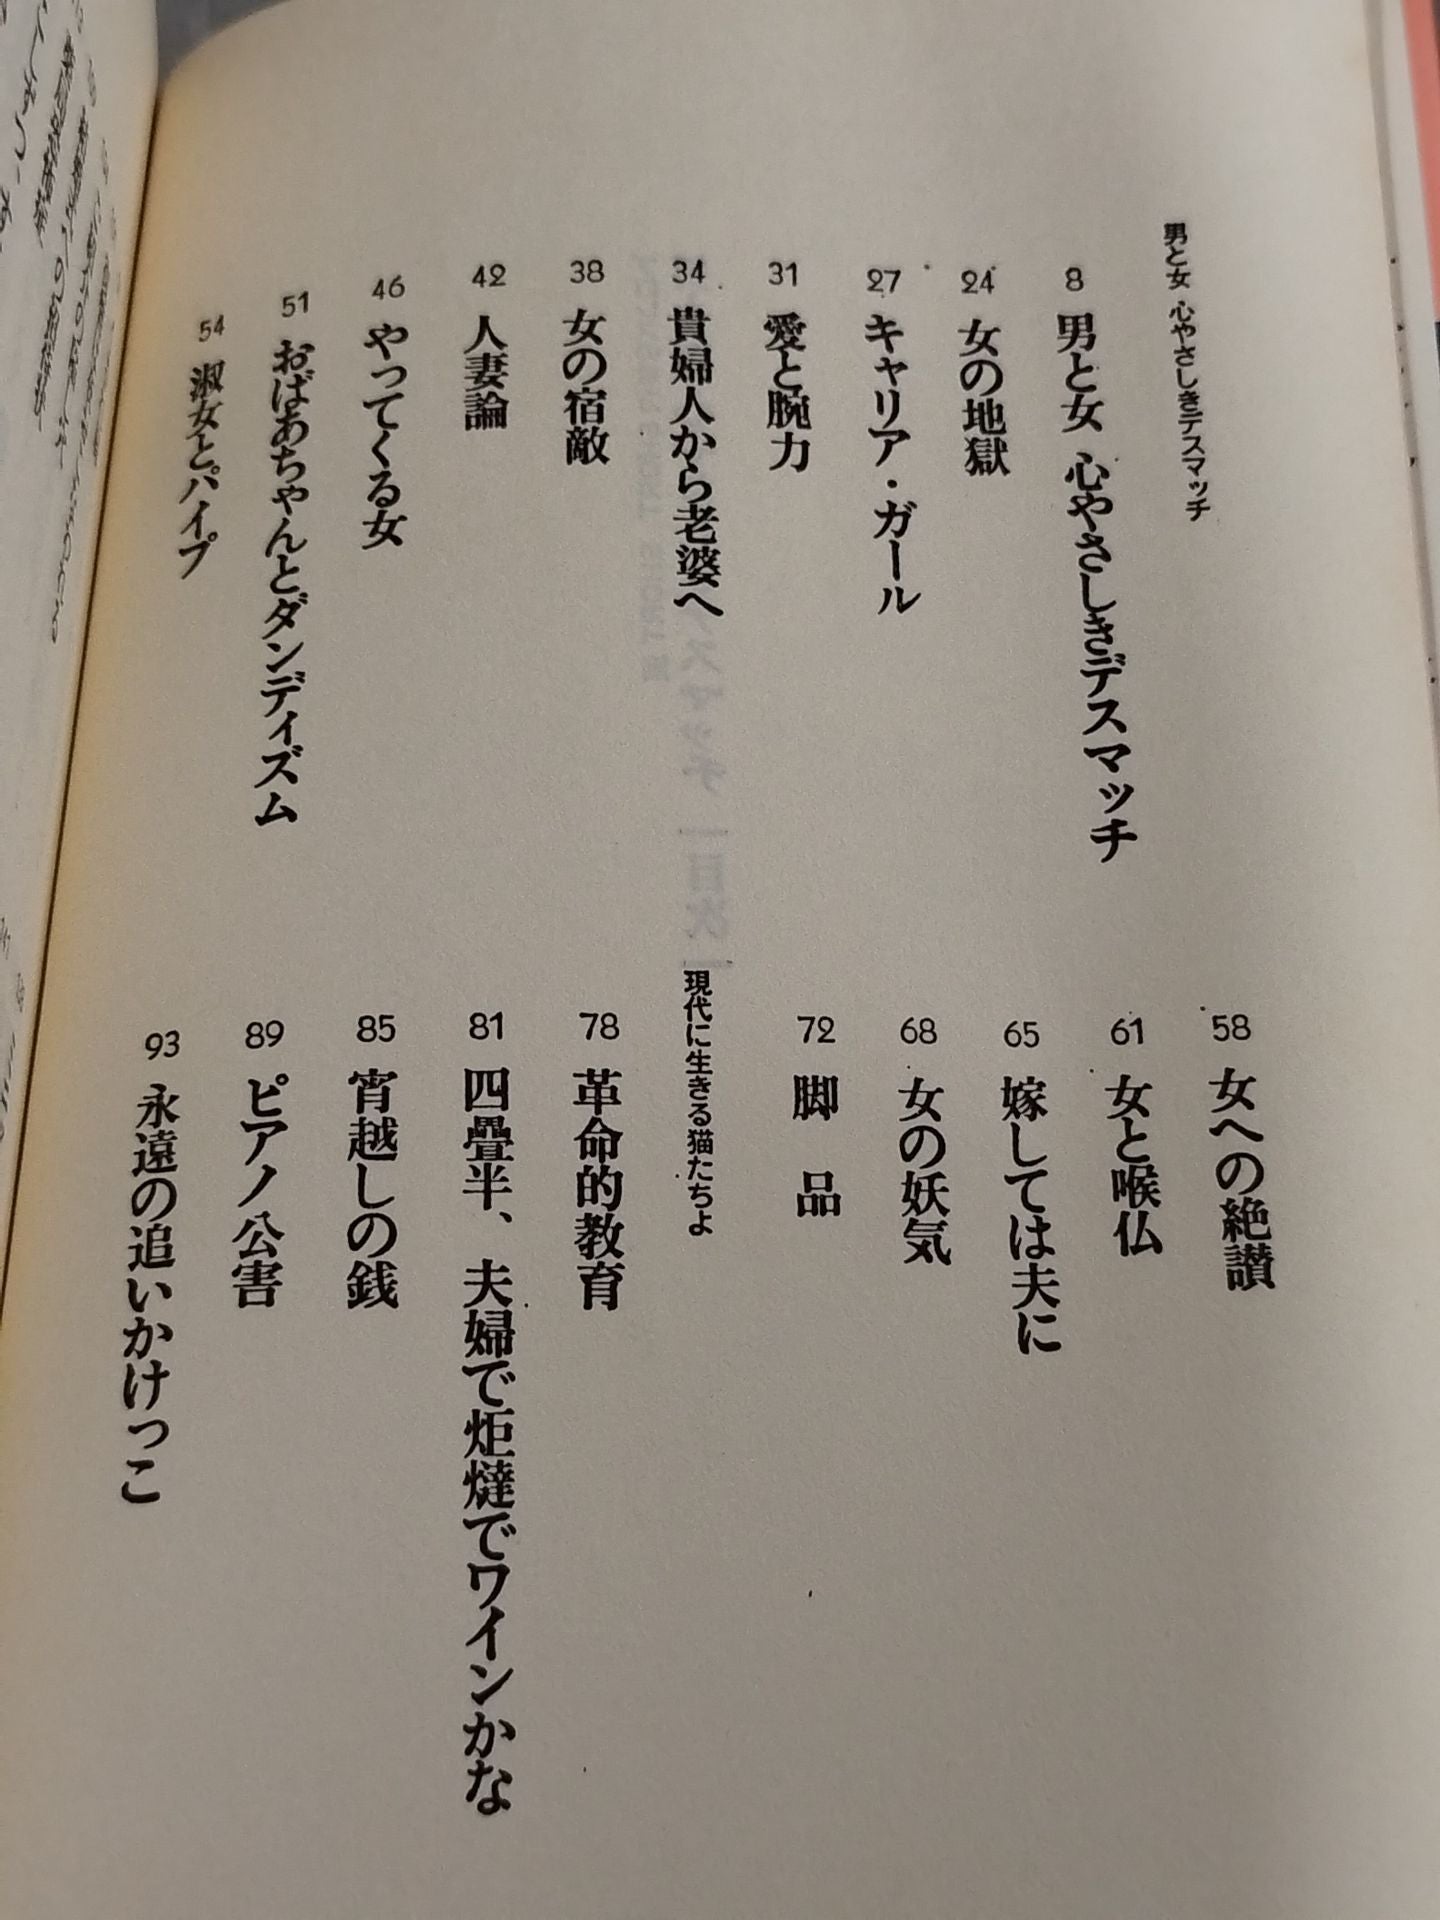 男と女 心やさしきデスマッチ
8 男と女 心やさしきデスマッチ
24 女の地獄
27 キャリア・ガール
31 愛と腕力
34 貴婦人から老婆へ
38 女の宿敵
42 人妻論
46 やってくる女
51 おばあちゃんとダンディズム
54 淑女とパイプ
58 女への絶讃
61 女と喉仏
65 嫁しては夫に
68 女の妖気
72 脚品
現代に生きる猫たちよ
78 革命的教育
81 四疊半、夫婦で炬燵でワインかな
85 宵越しの銭
89 ピアノ公害
93 永遠の追いかけっこ